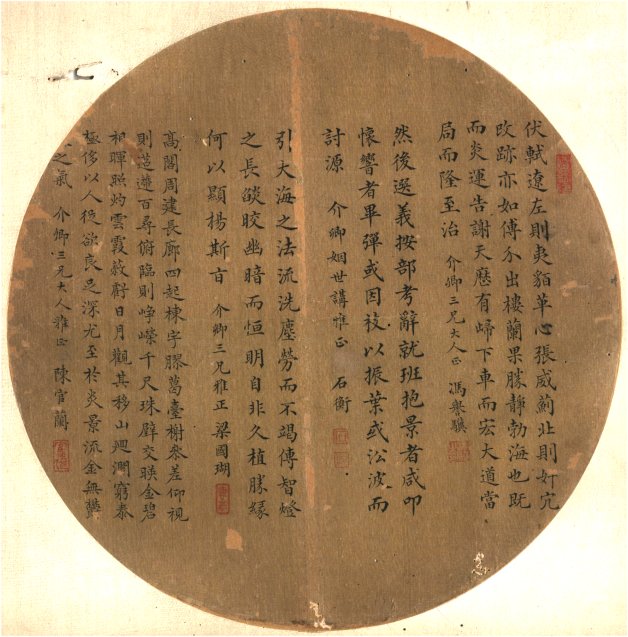 伏軾遼左則夷貊革心張威薊北則奸宄
攺跡亦如傅介出樓蘭果勝靜勃海也既
而炎運告謝天厯有歸下車而宏大道當
局而隆至治 介卿三兄大人正 馮譽驥
然後選義按部考辭就班抱景者咸叩
懷響者畢彈或因枝以振葉或㳂波而
討源 介卿姻世講惟正 石衡
引大海之法流洗塵勞而不竭傳智燈
之長燄皎幽暗而恒明自非久植勝緣
何以顯揚斯旨 介卿三兄雅正 梁國瑚
高閣周建長廊四起棟宇膠葛臺榭參差仰視
則迢遰百尋俯臨則崢嶸千尺珠璧交暎金碧
相暉照灼雲霞蔽虧日月觀其移山迴澗窮泰
極侈以人從欲良足深尤至於炎景流金無鬱
之氣 介卿三兄大人雅正 陳官蘭